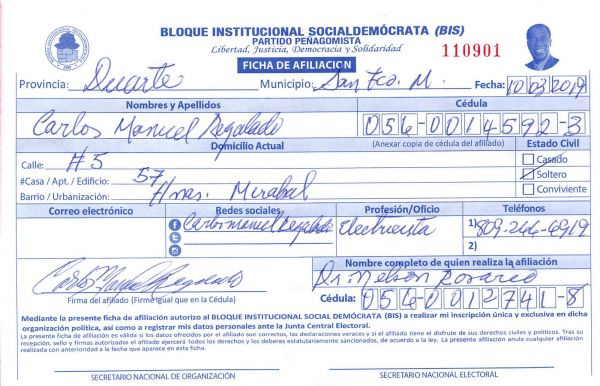 BLOQUE INSTITUCIONAL SOCIALDEMÓCRATA (BIS)
PARTIDO PEÑAGOMISTA
Libertad, Justicia, Democracia y Solidaridad
110901
FICHA DE AFILIACIÓN
Provincia: Duarte Municipio: San Fco. M. Fecha: 10 03 2019
Nombres y Apellidos Cédula
Carlos Manuel Regalado 056-0014592-3
Domicilio Actual (Anexar copia de cédula del afiliado) Estado Civil
Calle: #5 Casado
#Casa / Apt. / Edificio: 57 Soltero
Barrio / Urbanización: Hnas. Mirabal Conviviente
Correo electrónico Redes sociales Profesión/Oficio Teléfonos
Carlos manuel Regalado Electricista 1) 809-244-6919
2)
Carlos Manuel Regalado Nombre completo de quien realiza la afiliación
Dr. Nelson Rosario
Firma del afiliado (Firme igual que en la Cédula) Cédula: 056-0012741-8
Mediante la presente ficha de afiliación autorizo al BLOQUE INSTITUCIONAL SOCIALDEMÓCRATA (BIS) a realizar mi inscripción única y exclusiva en dicha
organización política, así como a registrar mis datos personales ante la Junta Central Electoral.
La presente ficha de afiliación es válida si los datos ofrecidos por el afiliado son correctos, las declaraciones veraces y si el afiliado tiene el disfrute de sus derechos civiles y políticos. Tras su
recepción, sello y firmas autorizadas el afiliado ejercerá todos los derechos y los deberes estatutariamente sancionados, de acuerdo a la ley. La presente afiliación anula cualquier afiliación
realizada con anterioridad a la fecha que aparece en esta ficha.
SECRETARIO NACIONAL DE ORGANIZACIÓN SECRETARIO NACIONAL ELECTORAL